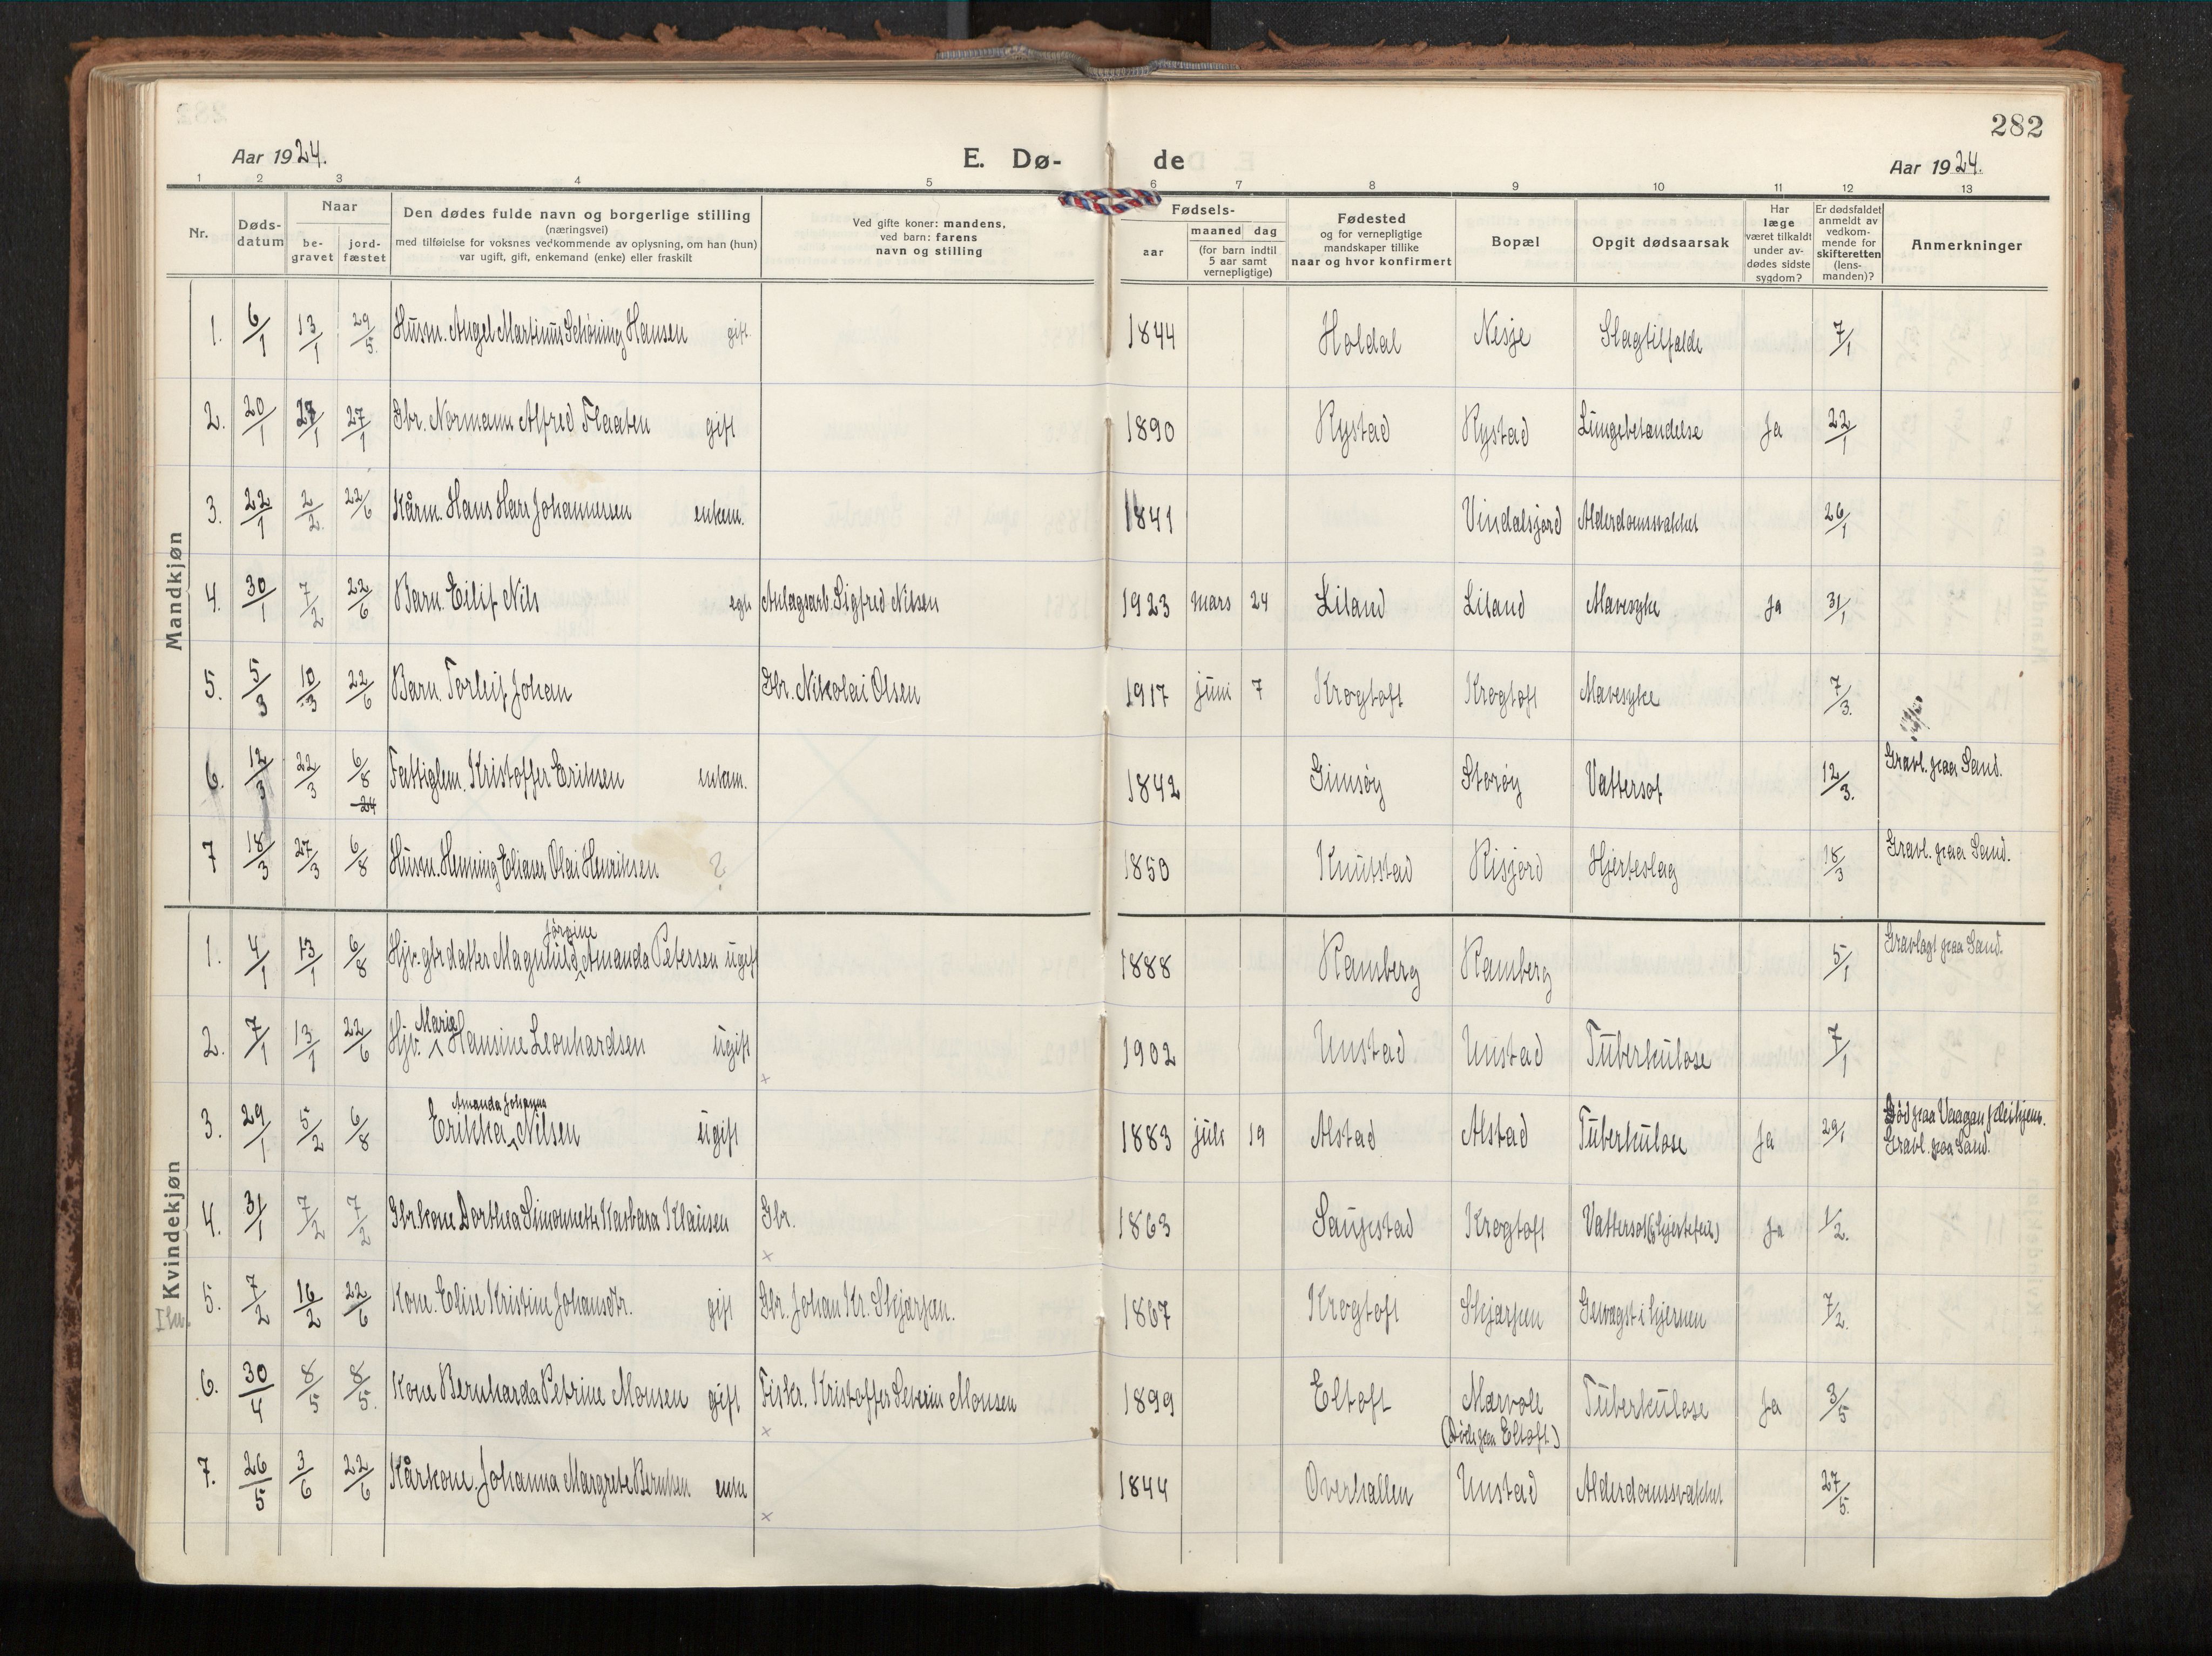 282
Aar 1924. E. Dø- de Aar 1924.
1 2 3 4 5 6 7 8 9 10 11 12 13
Nr. Døds-datum Naar be-gravet jord-fæstet Den dødes fulde navn og borgerlige stilling (næringsvei) med tilføielse for voksnes vedkommende av oplysning, om han (hun) var ugift, gift, enkemand (enke) eller fraskilt Ved gifte koner: mandens, ved barn: farens navn og stilling Fødsels- aar maaned dag (for barn indtil 5 aar samt vernepligtige) Fødested og for vernepligtige mandskaper tillike naar og hvor konfirmert Bopæl Opgit dødsaarsak Har læge været tilkaldt under av-dødes sidste sygdom? Er dødsfaldet anmeldt av vedkom-mende for skifteretten (lens-manden)? Anmerkninger
Mandkjøn
1. 6/1 13/1 29/5. Husm. Angel Martinus Schøning Hansen gift. 1844 Holdal Nesje Slagtilfælde 7/1
2. 20/1 27/1 27/1 Gbr. Normann Alfred Flaaten gift 1890 Rystad Rystad Lungebetændelse Ja 22/1
3. 22/1 2/2. 22/6 Kårm. Hans Hare Johannesen enkem. 1841 Vindalsjord Alderdomssvakhet 26/1
4. 30/1 7/2 22/6 Barn. Eilif Nils egte Anlagsarb. Sigfred Nilsen 1923 mars 24 Liland Liland Mavesyke Ja 31/1
5. 5/3 10/3 22/6 Barn. Torleif Johan Gbr. Nikolai Olsen 1917 juni 7 Krogtoft Krogtoft Mavesyke 7/3.
6. 12/3 22/3 6/8 24 Fattiglem. Kristoffer Eriksen enkem. 1842 Gimsøy Storøy Vattersot 12/3. Gravl. paa Sand.
7 18/3 27/3 6/8 Husm. Henning Eliaser Olai Henriksen ? 1850 Knutstad Risjord Hjerteslag 18/3 Gravl. paa Sand.
Kvindekjøn
1. 4/1 13/1 6/8 Hjv. gbrdatter Magnhild Jørgine Amanda Petersen ugift 1888 Ramberg Ramberg 5/1 Gravlagt paa Sand.
2. 7/1 13/1 22/6 Hjv. Marie Hansine Leonhardsen ugift 1902 Unstad Unstad Tuberkulose 7/1
3. 29/1 5/2 6/8 Erikka Amanda Johanna Nilsen ugift 1883 juli 19 Alstad Alstad Tuberkulose Ja 29/1 Død paa Vaagan pleihjem. Gravl. paa Sand.
4. 31/1 7/2 7/2 Gbr.kone Dorthea Simonnette Barbara Klausen Gbr. 1863 Saupstad Krogtoft Vattersot (hjertefeil) Ja 1/2.
5. 7/2 16/2 22/6 Kone. Elise Kristine Johansdtr. gift Gbr. Johan Kr. Skjærpen. 1867 Krogtoft Skjærpen Gevægst i hjernen 7/2.
6. 30/4 8/5 8/5. Kone Bernharda Petrine Monsen gift Fiskr. Kristoffer Severin Monsen 1899 Eltoft Mærvoll (Døde paa Eltoft.) Tuberkulose Ja 3/5
7. 26/5 3/6 22/6 Kårkone. Johanna Margrete Berntsen enke 1844 Overhallen Unstad Alderdomssvakhet 27/5.